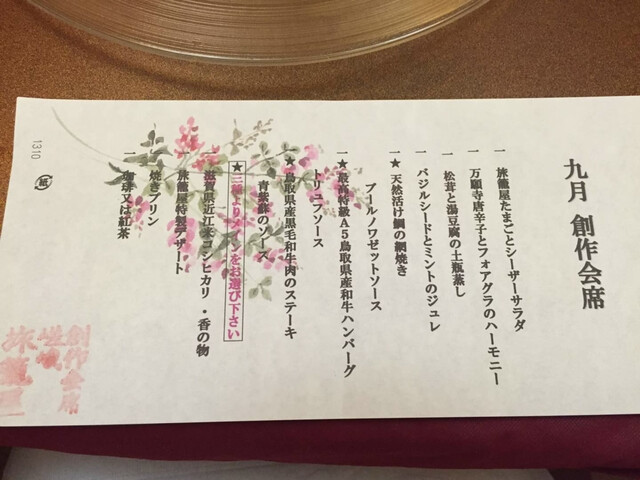 九月 創作会席
一 旅籠屋たまごとシーザーサラダ
一 万願寺唐辛子とフォアグラのハーモニー
一 松茸と湯豆腐の土瓶蒸し
一 バジルシードとミントのジュレ
一 ★天然活け鯛の網焼き
ブールノワゼットソース
一 ★最高特級A5鳥取県産和牛ハンバーグ
トリュフソース
一 ★鳥取県産黒毛和牛肉のステーキ
青紫蘇のソース
★三種よりメインをお選び下さい
一 滋賀県近江米コシヒカリ・香の物
一 旅籠屋特製デザート
一 焼きプリン
一 珈琲又は紅茶
創作会席
旅籠屋
1310
紙